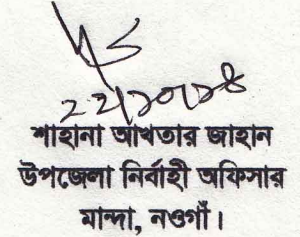 শাহানা আখতার জাহান
উপজেলা নির্বাহী অফিসার
মান্দা, নওগাঁ।